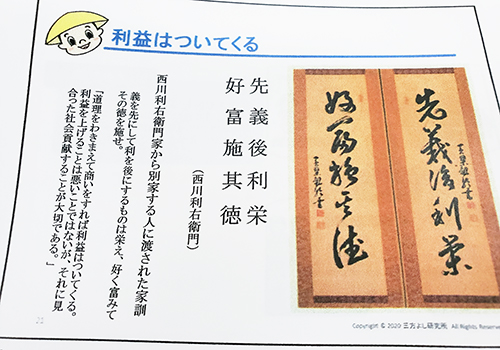 利益はついてくる
先義後利栄
好富施其徳
(西川利右衛門)
西川利右衛門家から別家する人に渡された家訓
義を先にして利を後にするものは栄え、好く富みて
その徳を施せ。
「道理をわきまえて商いをすれば利益はついてくる。
利益を上げることは悪いことではないが、それに見
合った社会貢献することが大切である。」
先義後利栄
好富施其徳
21
Copyright © 2020 三方よし研究所 All Rights Reserved